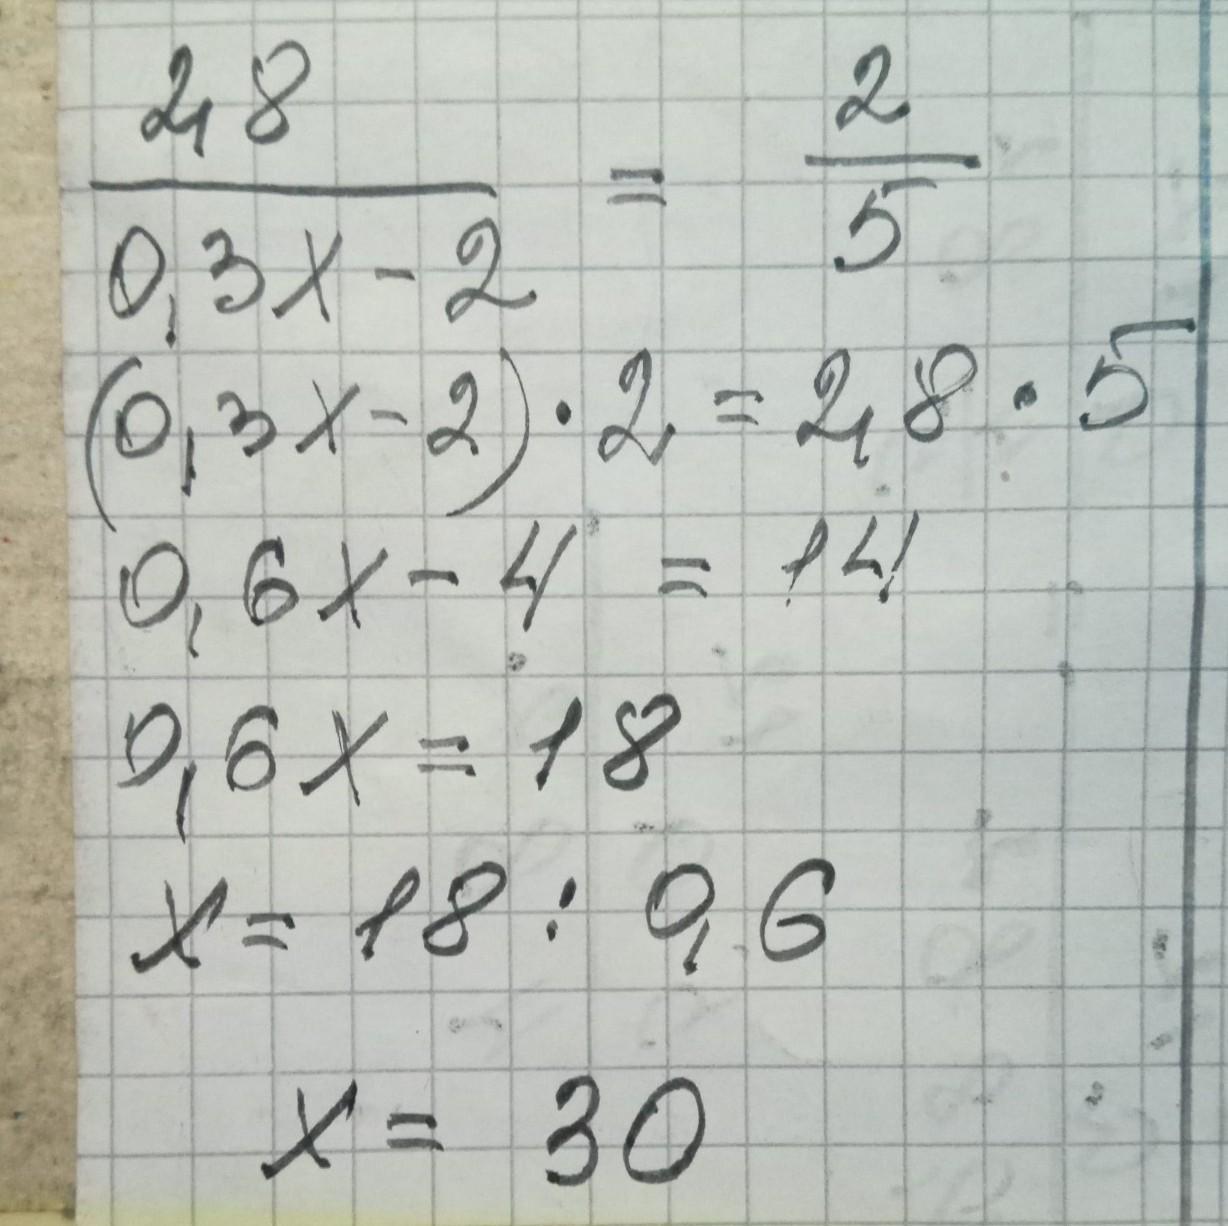 2,8 / 0,3x - 2 = 2 / 5
(0,3x - 2) · 2 = 2,8 · 5
0,6x - 4 = 14
0,6x = 18
x = 18 : 0,6
x = 30